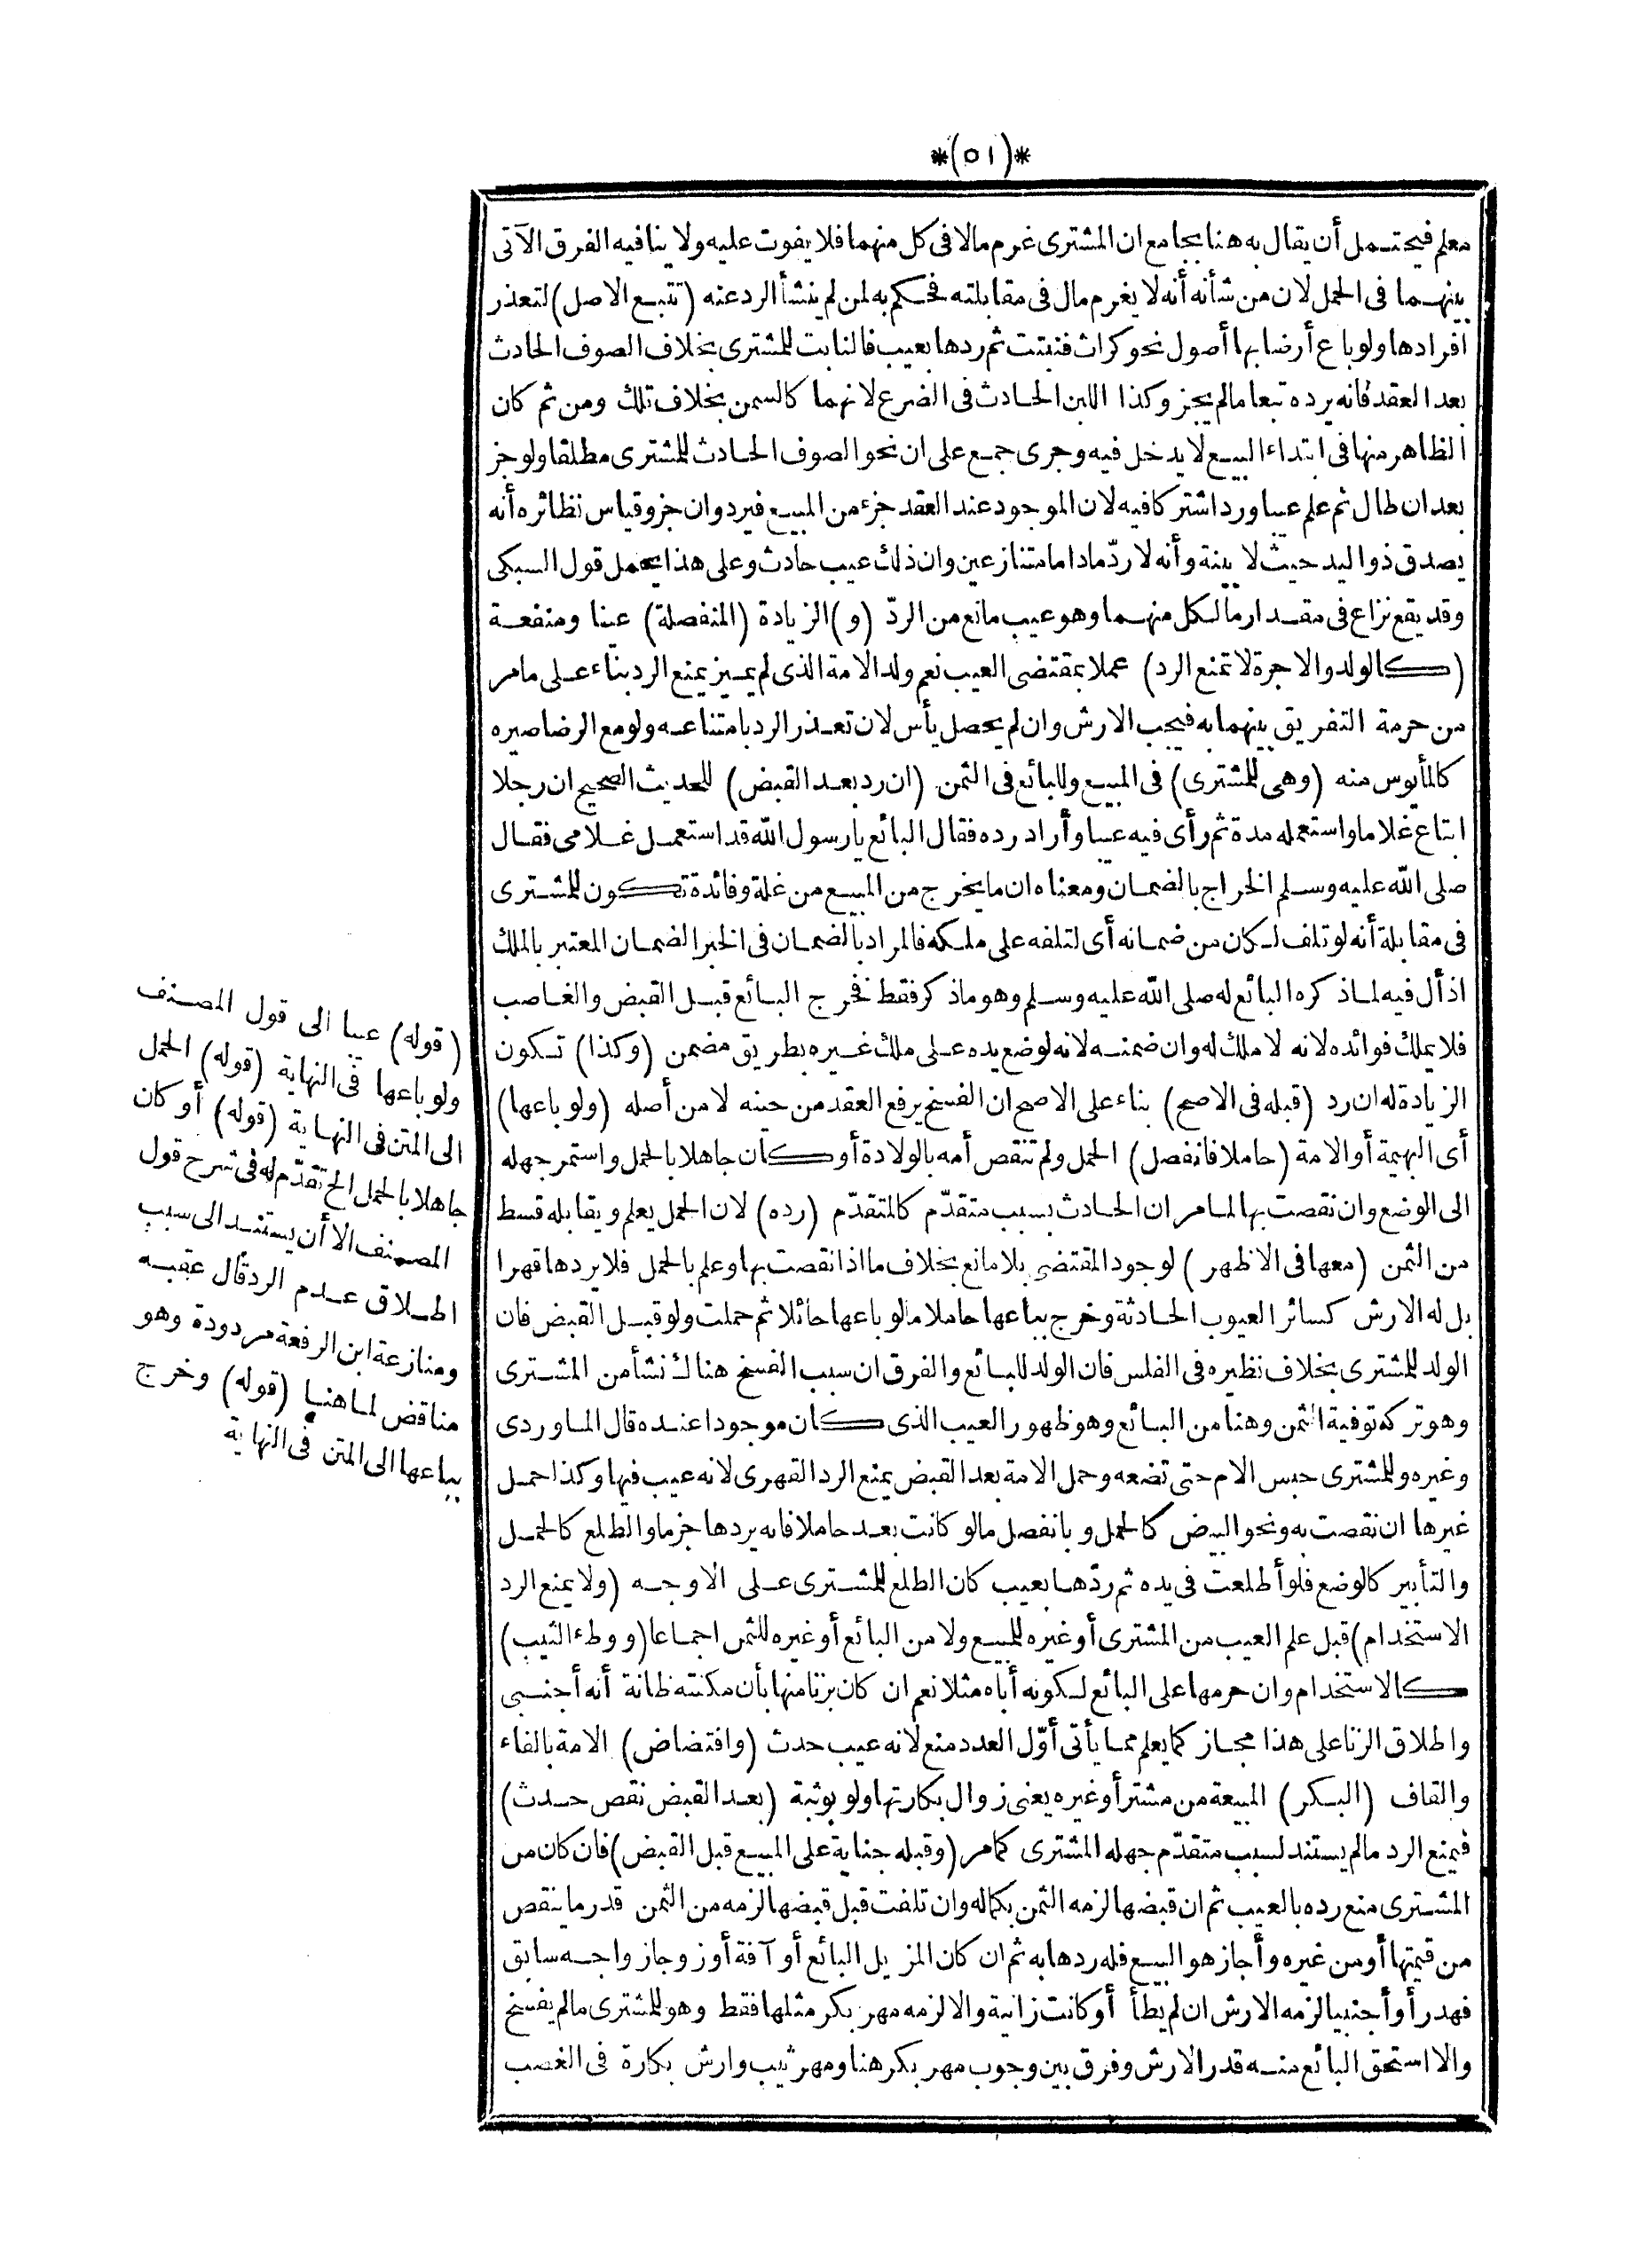 *(٥١)*
معلم فيحتمل أن يقال به هنا بجامع ان المشترى غرم مالا فى كل منهما فلا يفوت عليه ولا ينافيه الفرق الآتى
بينهما فى الحمل لان من شأنه أنه لا يغرم مال فى مقابلته فحكم به لمن لم ينشأ الرد عنه (تتبع الاصل) لتعذر
افرادها ولو باع أرضا بها أصول نحو كراث فنبتت ثم ردها بعيب فالنابت للمشترى بخلاف الصوف الحادث
بعد العقد فانه يرده تبعا مالم يجز وكذا اللبن الحادث فى الضرع لانهما كالسمن بخلاف تلك ومن ثم كان
الظاهر منها فى ابتداء البيع لا يدخل فيه وجرى جمع على ان نحو الصوف الحادث للمشترى مطلقا ولو جز
بعد ان طال ثم علم عيبا ورد اشتركا فيه لان الموجود عند العقد جزء من المبيع فيرد وان جز وقياس نظائره أنه
يصدق ذو اليد حيث لا بينة وأنه لا ردّ ماداما متنازعين وان ذلك عيب حادث وعلى هذا يحمل قول السبكى
وقد يقع نزاع فى مقدار مالكل منهما وهو عيب مانع من الردّ (و) الزيادة (المنفصلة) عينا ومنفعة
(كالولد والاجرة لا تمنع الرد) عملا بمقتضى العيب نعم ولد الامة الذى لم يميز يمنع الرد بناء على مامر
من حرمة التفريق بينهما به فيجب الارش وان لم يحصل يأس لان تعذر الرد بامتناعه ولو مع الرضا صيره
كالمأيوس منه (وهى للمشترى) فى المبيع وللبائع فى الثمن (ان رد بعد القبض) للحديث الصحيح ان رجلا
ابتاع غلاما واستعمله مدة ثم رأى فيه عيبا وأراد رده فقال البائع يارسول الله قد استعمل غلامى فقال
صلى الله عليه وسلم الخراج بالضمان ومعناه ان ما يخرج من المبيع من غلة وفائدة تكون للمشترى
فى مقابلة أنه لو تلف لكان من ضمانه أى لتلفه على ملكه فالمراد بالضمان فى الخبر الضمان المعتبر بالملك
اذ أل فيه لماذكره البائع له صلى الله عليه وسلم وهو ماذكر فقط فخرج البائع قبل القبض والغاصب
فلا يملك فوائده لانه لا ملك له وان ضمنه لانه لوضع يده على ملك غيره بطريق مضمن (وكذا) تكون
الزيادة له ان رد (قبله فى الاصح) بناء على الاصح ان الفسخ يرفع العقد من حينه لا من أصله (ولو باعها)
أى البهيمة أو الامة (حاملا فانفصل) الحمل ولم تنقص أمه بالولادة أو كان جاهلا بالحمل واستمر جهله
الى الوضع وان نقصت بها لمامر ان الحادث بسبب متقدّم كالمتقدّم (رده) لان الحمل يعلم ويقابله قسط
من الثمن (معها فى الاظهر) لوجود المقتضى بلا مانع بخلاف ما اذا نقصت بها وعلم بالحمل فلا يردها قهرا
بل له الارش كسائر العيوب الحادثة وخرج بباعها حاملا مالو باعها حائلا ثم حملت ولو قبل القبض فان
الولد للمشترى بخلاف نظيره فى الفلس فان الولد للبائع والفرق ان سبب الفسخ هناك نشأ من المشترى
وهو تركه توفية الثمن وهنا من البائع وهو ظهور العيب الذى كان موجودا عنده قال الماوردى
وغيره وللمشترى حبس الام حتى تضعه وحمل الامة بعد القبض يمنع الرد القهرى لانه عيب فيها وكذا حمل
غيرها ان نقصت به ونحو البيض كالحمل وبانفصل مالو كانت بعد حاملا فانه يردها جزما والطلع كالحمل
والتأبير كالوضع فلو أطلعت فى يده ثم ردّها بعيب كان الطلع للمشترى على الاوجه (ولا يمنع الرد
الاستخدام) قبل علم العيب من المشترى أو غيره للمبيع ولا من البائع أو غيره للثمن اجماعا (ووطء الثيب)
كالاستخدام وان حرمها على البائع لكونه أباه مثلا نعم ان كان بزنا منها بأن مكنته ظانة أنه أجنبى
واطلاق الزنا على هذا مجاز كما يعلم مما يأتى أوّل العدد منع لانه عيب حدث (وافتضاض) الامة بالفاء
والقاف (البكر) المبيعة من مشتر أو غيره يعنى زوال بكارتها ولو بوثبة (بعد القبض نقص حدث)
فيمنع الرد مالم يستند لسبب متقدّم جهله المشترى كمامر (وقبله جناية على المبيع قبل القبض) فان كان من
المشترى منع رده بالعيب ثم ان قبضها لزمه الثمن بكماله وان تلفت قبل قبضها لزمه من الثمن قدر ما نقص
من قيمتها أو من غيره وأجاز هو البيع فله ردها به ثم ان كان المزيل البائع أو آفة أو زوجا زواجه سابق
فهدر أو أجنبيا لزمه الارش ان لم يطأ أو كانت زانية والا لزمه مهر بكر مثلها فقط وهو للمشترى مالم يفسخ
والا استحق البائع منه قدر الارش وفرق بين وجوب مهر بكر هنا ومهر ثيب وارش بكارة فى الغصب
(قوله) عينا الى قول المصنف
ولو باعها فى النهاية (قوله) الحمل
الى المتن فى النهاية (قوله) أو كان
جاهلا بالحمل الخ تقدّم له فى شرح قول
المصنف الا أن يستند الى سبب
اطلاق عدم الرد قال عقبه
ومنازعة ابن الرفعة مردودة وهو
مناقض لما هنا (قوله) وخرج
بباعها الى المتن فى النهاية